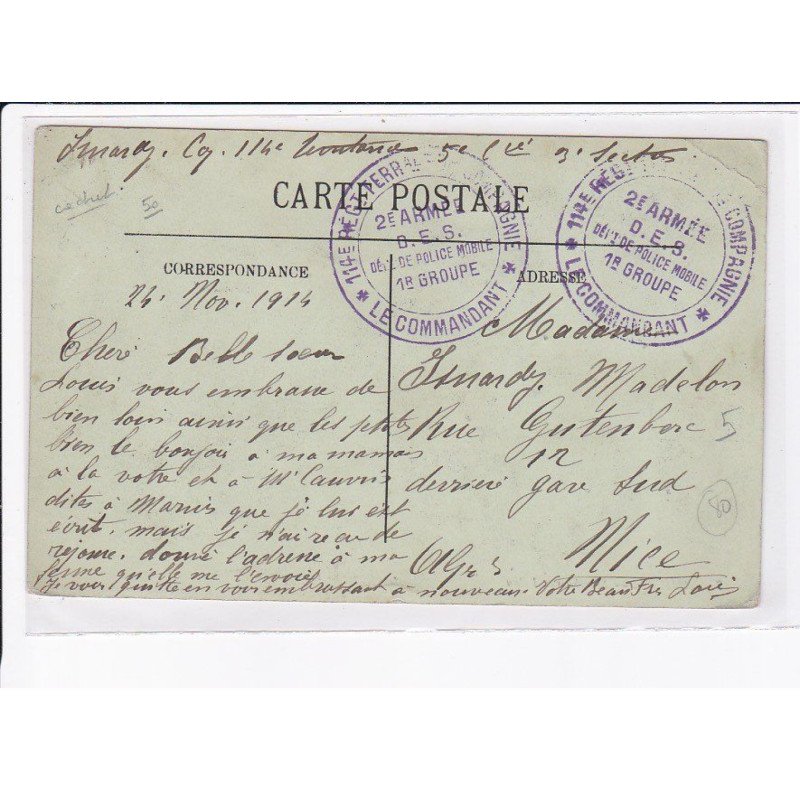 Isnardy. Cy. 114e 5e Cie 3e Section
cachet
50
CARTE POSTALE
114E RÉGT TERRAL COMPAGNIE
2E ARMÉE
D. E. S.
DÉT. DE POLICE MOBILE
1R GROUPE
LE COMMANDANT
114E RÉGT COMPAGNIE
2E ARMÉE
D. E. S.
DÉT. DE POLICE MOBILE
1R GROUPE
LE COMMANDANT
CORRESPONDANCE
ADRESSE
24 Nov. 1914
Cheré Belle soeur
Louis vous embrasse de
bien loin ainsi que les ptits
bien le bonjour a ma maman
a la votre et à Mr
dites à Marius que je lui est
écrit. mais je n'ai reçu de
rejonse. donné l'adresse à ma
femme qu'elle me l'envoié
Je vous quitte en vous embrassant à nouveau. Votre Beau Fre Louis
Madame
Isnardy. Madelon
Rue Gutenberc 5
12
derriere gare Sud
Nice
80